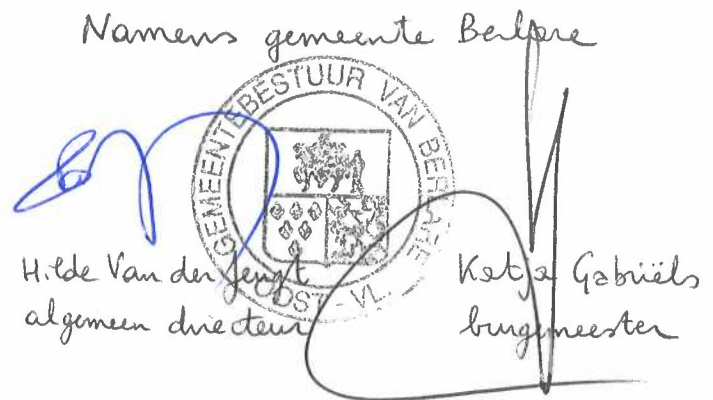 Namens gemeente Berlare
GEMEENTEBESTUUR VAN BERLARE
OOST-VL.
Hilde Van der Jeugt
algemeen directeur
Katja Gabriëls
burgemeester